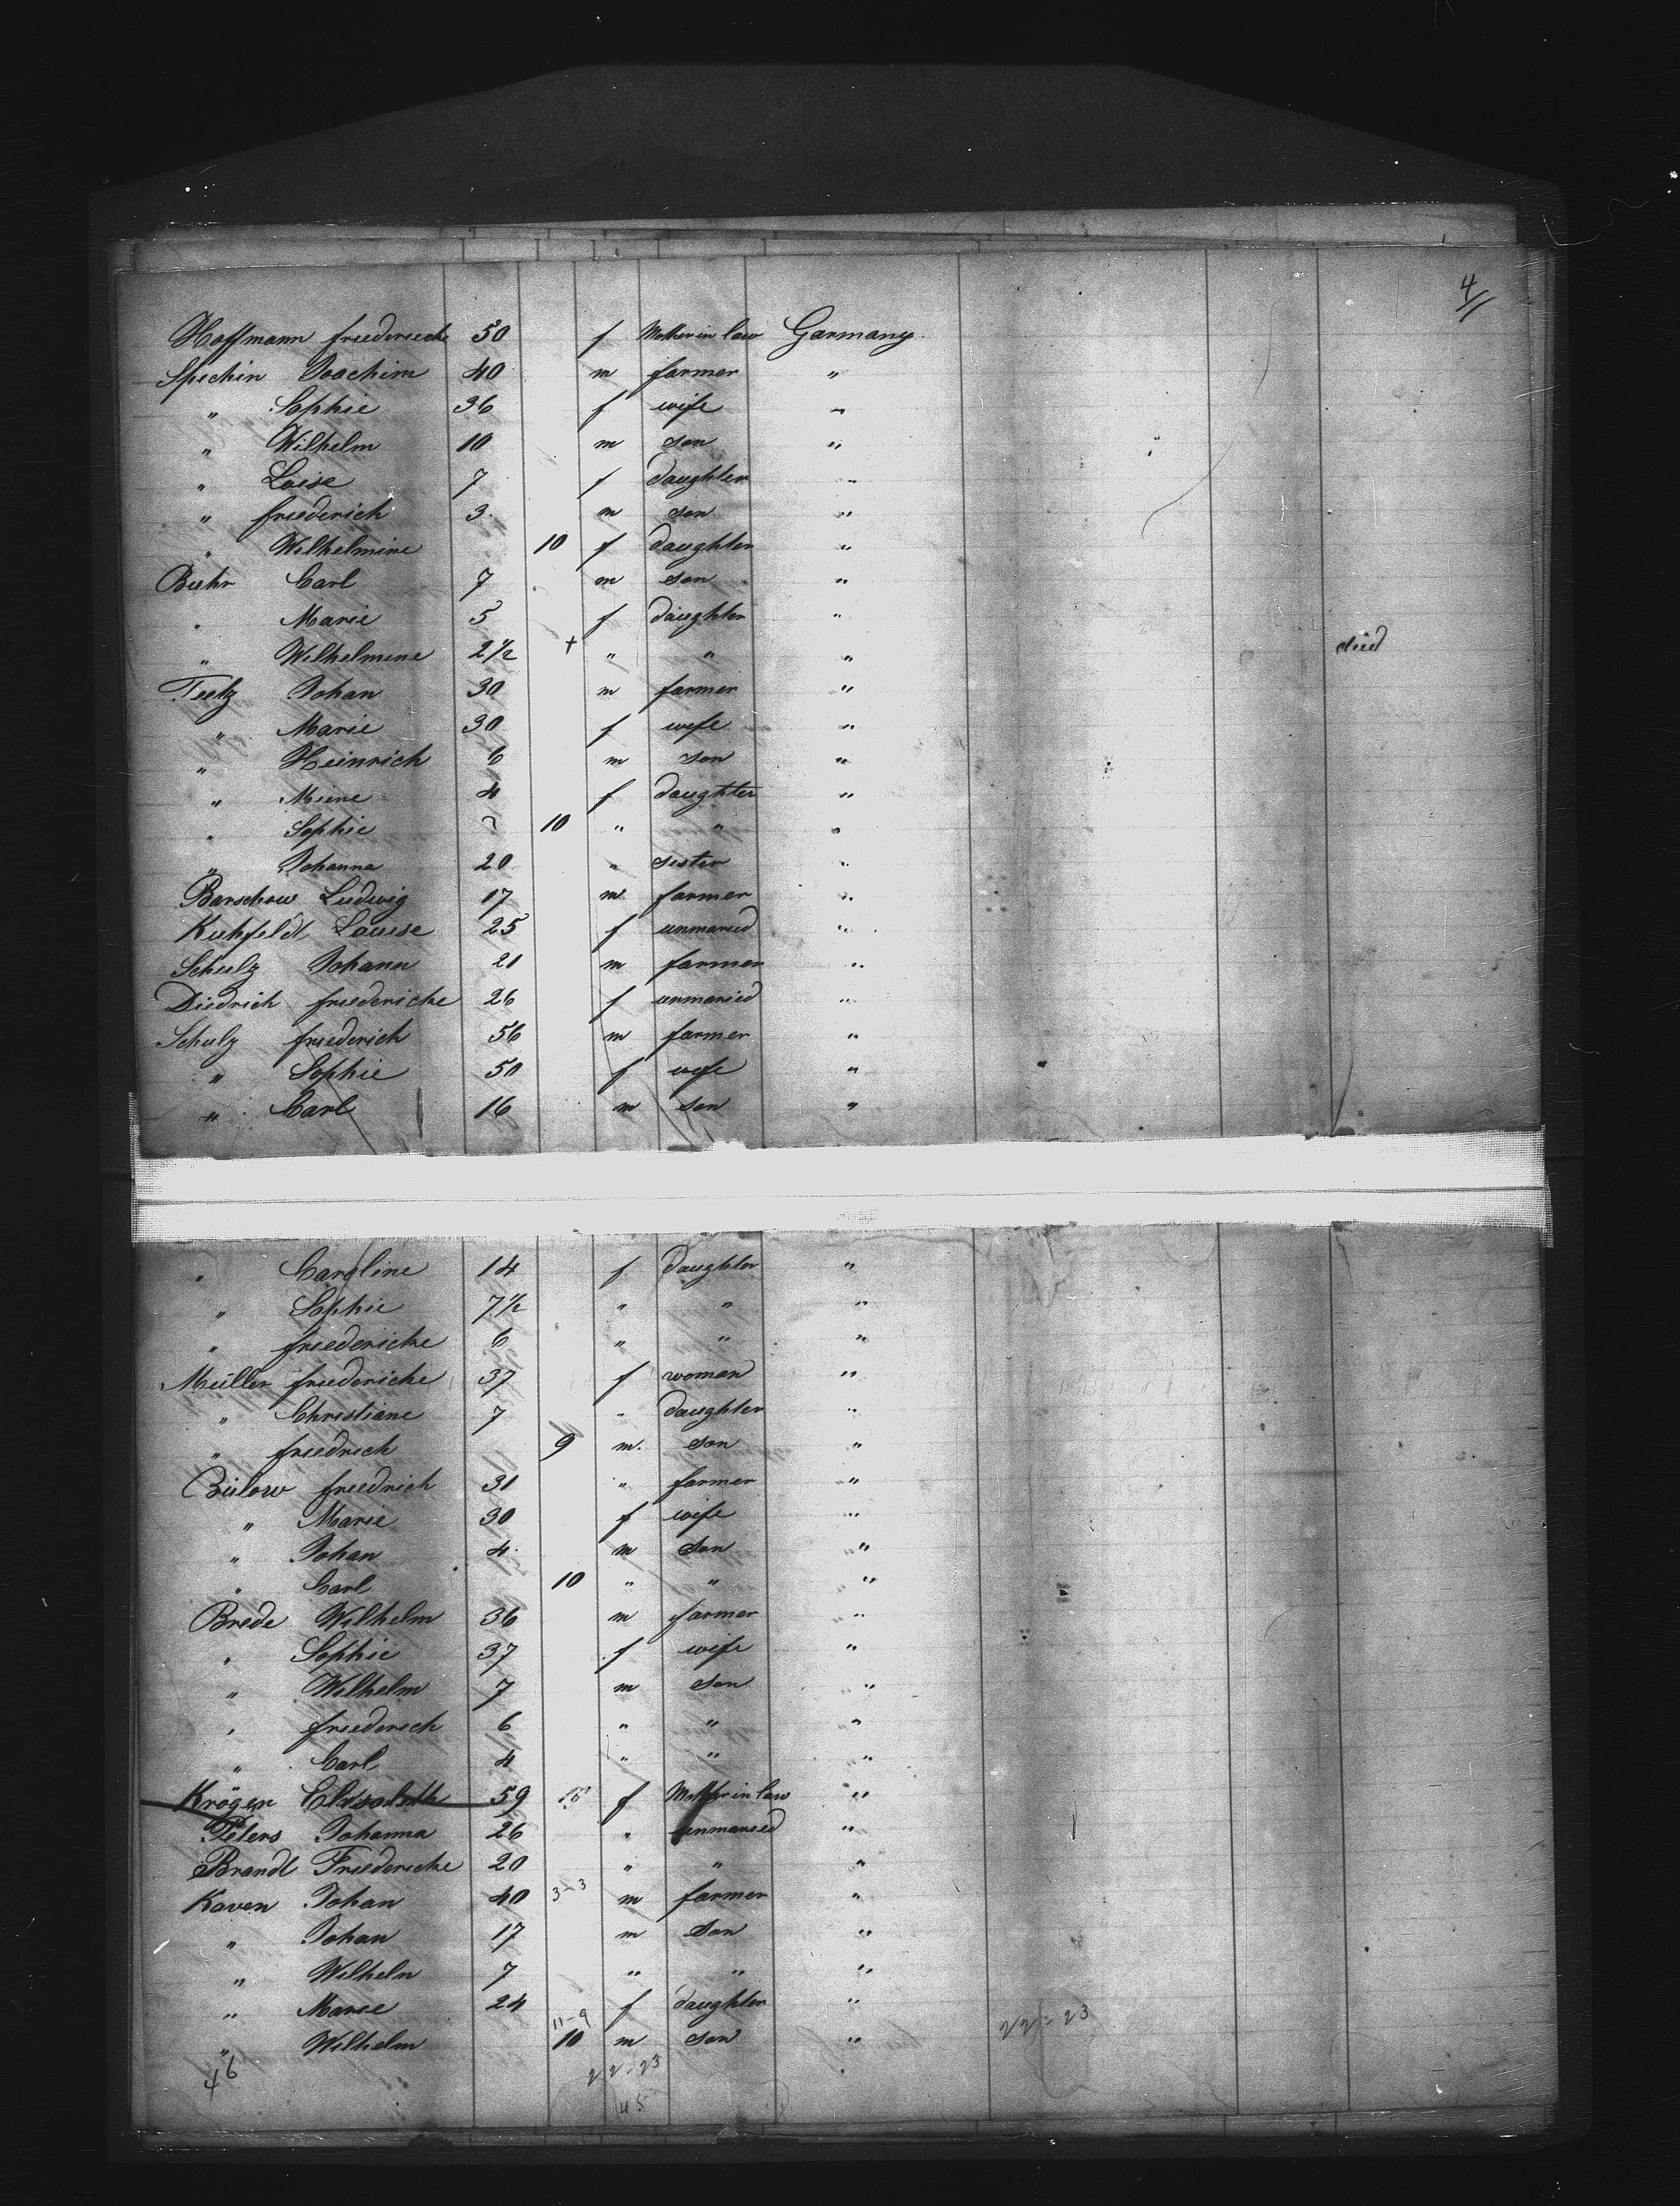 4
Hoffmann friederieche 50 f Mother in law Germany
Spechin Joachim 40 m farmer "
" Sophie 36 f wife "
" Wilhelm 10 m son "
" Loise 7 f daughter "
" friederich 3 m son "
" Wilhelmine 10 f daughter "
Buhr Carl 7 m son "
" Marie 5 f daughter "
" Wilhelmene 2 1/2 + " " " died
Teetz Johan 30 m farmer "
" Marie 30 f wife "
" Heinrich 6 m son "
" Miene 4 f daughter "
" Sophie 10 " " "
" Johanna 20 " sister "
Barschow Ludwig 17 m farmer "
Kuhfeldt Louise 25 f unmaried "
Schulz Johann 21 m farmer "
Diedrich friedericke 26 f unmaried "
Schulz friederich 56 m farmer "
" Sophie 50 f wife "
" Carl 16 m son "
" Caroline 14 f daughter "
" Sophie 7 1/2 " " "
" friedericke 6 " " "
Müller friedericke 37 f woman "
" Christiane 7 " daughter "
" friedrich 9 m. son "
Bülow friedrich 31 " farmer "
" Marie 30 f wife "
" Johan 4 m son "
" Carl 10 " " "
Brede Wilhelm 36 m farmer "
" Sophie 37 f wife "
" Wilhelm 7 m son "
" friederich 6 " " "
" Carl 4 " " "
Kröger Elisabeth 59 f Mother in law "
Peters Johanna 26 " unmaried "
Brandt Friedericke 20 " " "
Kaven Johan 40 3-3 m farmer "
" Johan 17 m son "
" Wilhelm 7 " " "
" Marie 24 f daughter "
11-9 22-23
" Wilhelm 10 m son "
46 22-23
45